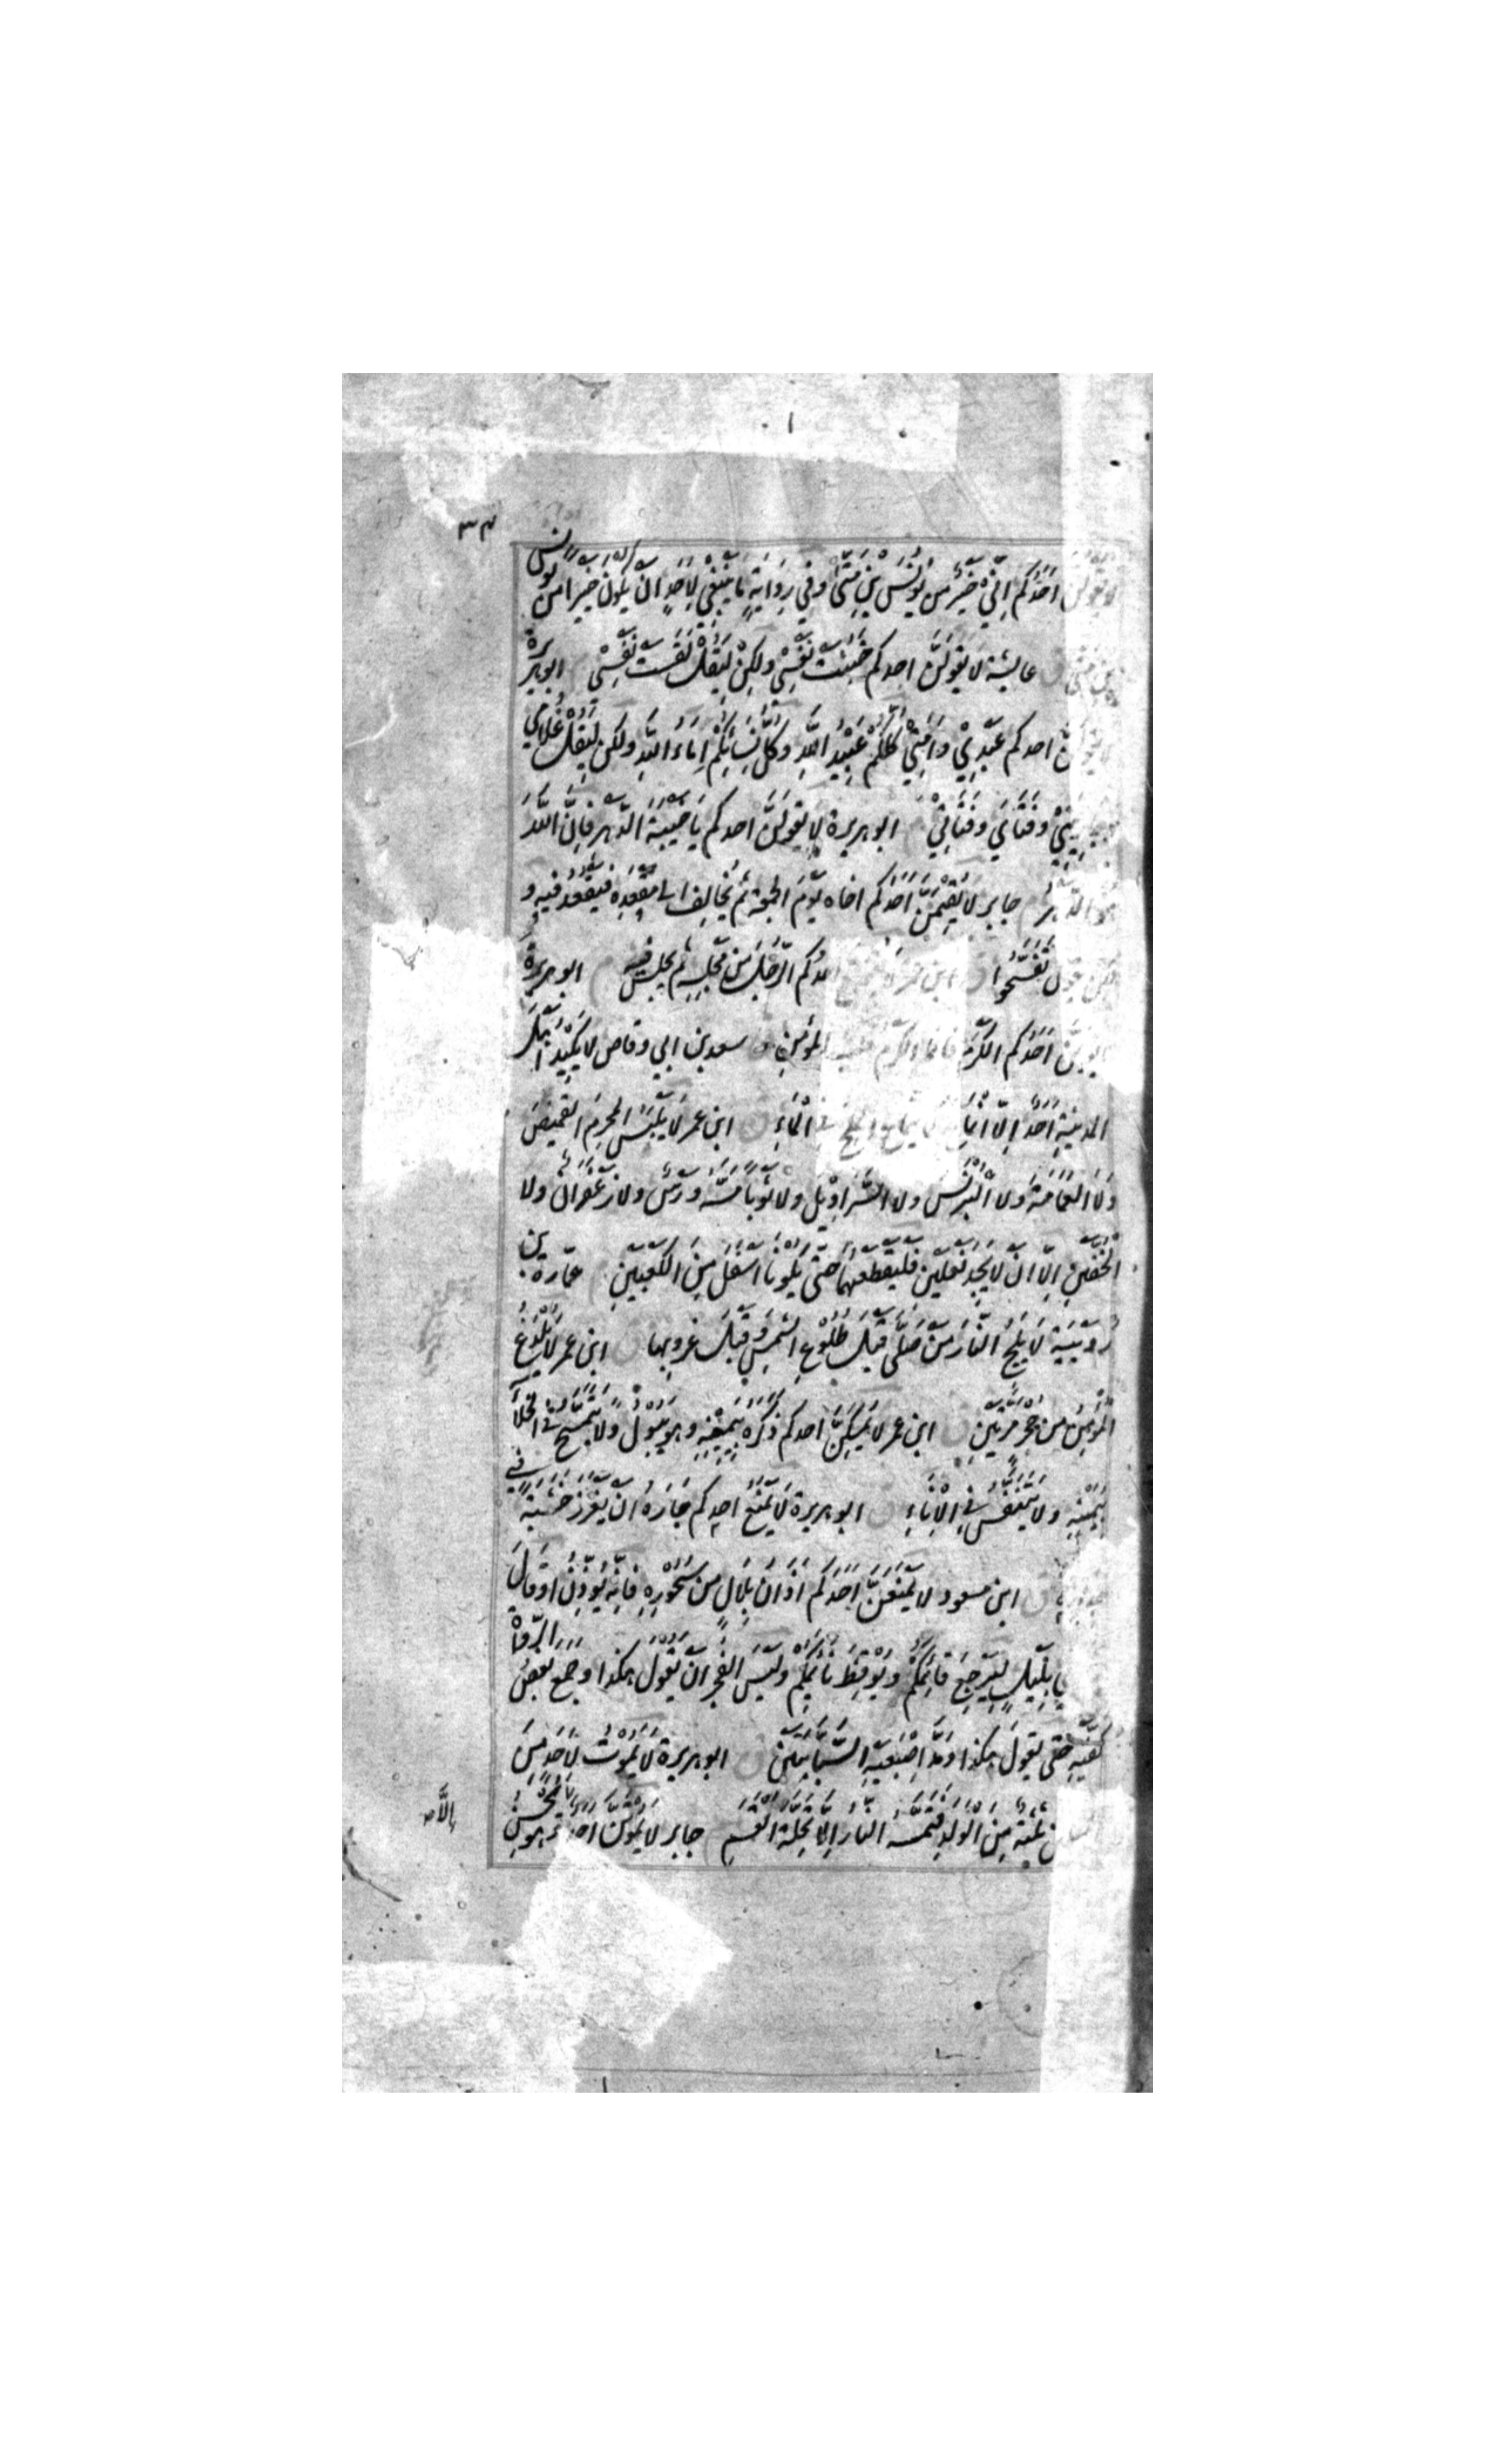 ٣٤
لا يقولن اَحَدُكُم اِنِّيْ خَيْرٌ من يُونُسَ بْنِ مَتّٰى وفي رِوَايَةٍ مَا يَنْبَغِيْ لِاَحَدٍ اَنْ يَكُونَ خَيْرا من يونس
بن متى ق عايشة لَا يَقُولَنَّ احدكم خَبُثَتْ نَفْسِيْ ولكِنْ لِيَقُلْ لَقِسَتْ نَفْسِيْ ابو هريرة
لا يقولَنَّ احدكم عَبْدِيْ وَاَمَتِيْ كُلُّكُمْ عَبِيْدُ اللّهِ وَكُلُّ نِسَائِكُمْ اِمَاءُ اللّهِ ولكن لِيَقُلْ غُلَامِي
وجَارِيَتِيْ وَفَتَايَ وَفَتَاتِيْ م ابو هريرة لا يقولَنَّ احدكم يَا خَيْبَةَ الدَّهْرِ فَاِنَّ اللّهَ
هو الدَّهْرُ م جابر لا يُقِيْمَنَّ اَحَدُكُم اخاه يَوْمَ الجمعة ثُمَّ يُخَالِفُ الى مَقْعَدِه فَيَقْعُدَ فِيهِ و
لكن يقول تَفَسَّحُوا ق ابن عمر لا يقيم احدُكم الرَّجُلَ مِنْ مَجْلِسِه ثم يجلس فيه م ابو هريرة
لا يقولَنَّ اَحَدُكم الكَرْمَ فانما الكرم قلب المؤمِنِ ق سعد بن ابي وقاص لا يَكِيْدُ اَهْلَ
المدينةِ اَحَدٌ اِلَّا انْمَاعَ كَمَا يَنْمَاعُ المِلْحُ فى المَاءِ ق ابن عمر لَا يَلْبَسُ المحرِمُ القميصَ
وَلَا العِمَامَةَ ولا البُرْنُسَ ولا السَّرَاوِيْلَ ولا ثَوْبًا مَسَّهُ وَرْسٌ ولا زَعْفَرَانٌ ولا
الخُفَّيْنِ اِلَّا اَنْ لَا يَجِدَ نَعْلَيْنِ فَلْيَقْطَعْهُمَا حَتّى يَكُوْنَا اَسْفَلَ مِنَ الكَعْبَيْنِ م عمّارة بن
رُوَيْبَةَ لَا يَلِجُ النَّارَ مَنْ صَلّى قَبْلَ طُلُوْعِ الشَّمْسِ وَقَبْلَ غروبِهَا ق ابن عمر لَا يُلْدَغُ
المُؤْمِنُ من جُحْرٍ مَرَّتَيْنِ ق ابن عمر لا يُمْسِكَنَّ احدكم ذَكَرَهُ بِيَمِيْنِهِ وهو يَبُوْلُ ولا يَتَمَسَّحْ فى الخَلَاءِ
بِيَمِيْنِهِ ولا يَتَنَفَّسْ فِى الاِنَاءِ ق ابو هريرة لَا يَمْنَعْ احدكم جَارَهُ اَنْ يَغْرِزَ خَشَبَةً في
جداره ق ابن مسعود لا يَمْنَعَنَّ اَحَدَكُم اَذَانُ بِلَالٍ من سَحُوْرِهِ فَاِنَّهُ يُؤَذِّنُ او قَالَ
ينادي بِلَيْلٍ لِيَرْجِعَ قَائِمَكُمْ وَيُوْقِظَ نَائِمَكُمْ وَلَيْسَ الفَجْرُ اَنْ يَقُوْلَ هكذا وَجَمَعَ بَعْضُ الرُّوَاةِ
كَفَّيْهِ حتّى يَقُولَ هكذا وَمَدَّ اِصْبَعَيْهِ السَّبَّابَتَيْنِ ق ابو هريرة لَا يَمُوْتُ لِاَحَدٍ مِنَ
المسلمين ثَلٰثَةٌ مِنَ الْوَلَدِ فَتَمَسَّهُ النارُ اِلَّا تَحِلَّةَ القَسَمِ م جابر لا يَمُوْتَنَّ احدكم اِلَّا وَهُوَ يُحْسِنُ
اِلَّا صح